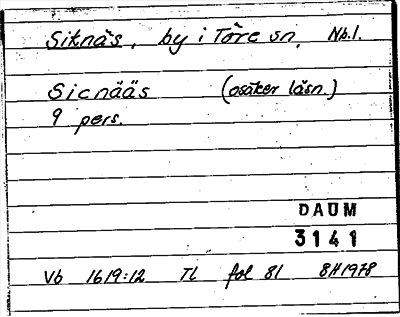 Siknäs, by i Töre sn, Nb.l.
Sicnääs (osäker läsn.)
9 pers.
DAUM
3141
Vb 1619:12 Tl fol 81 BH 1978